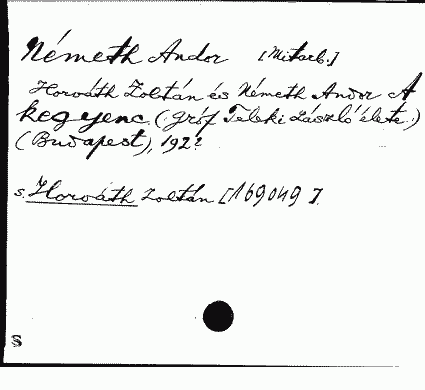 Németh Andor [Mitarb.]
Horváth Zoltán és Németh Andor A
kegyenc. (Gróf Teleki László élete.)
(Budapest), 192?
s. Horváth Zoltán [169049].
S